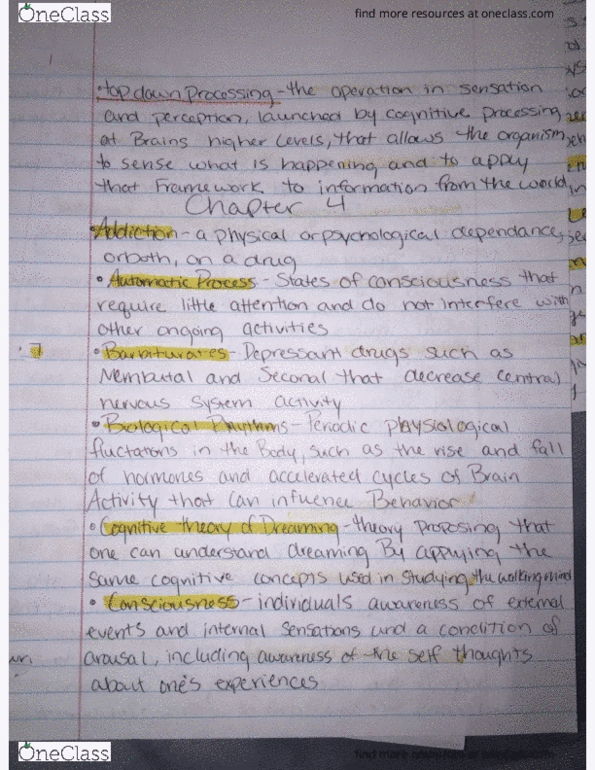 OneClass
find more resources at oneclass.com
•top down processing - the operation in sensation
and perception, launched by cognitive processing
at Brains higher levels, that allows the organism
to sense what is happening and to apply
that Framework to information from the world
Chapter 4
•Addiction - a physical or psychological dependance,
or both, on a drug
•Automatic Process - States of consciousness that
require little attention and do not interfere with
other ongoing activities
•Barbiturates - Depressant drugs such as
Nembutal and Seconal that decrease central
nervous system activity
•Biological Rhythms - Periodic physiological
fluctations in the Body, such as the rise and fall
of hormones and accelerated cycles of Brain
Activity that can influence Behavior
•Cognitive theory of Dreaming - theory proposing that
one can understand dreaming By applying the
same cognitive concepts used in studying the walking mind
•Consciousness - individuals awareness of external
events and internal sensations und a condition of
arousal, including awareness of the self thoughts
about one's experiences
OneClass
find more resources at oneclass.com